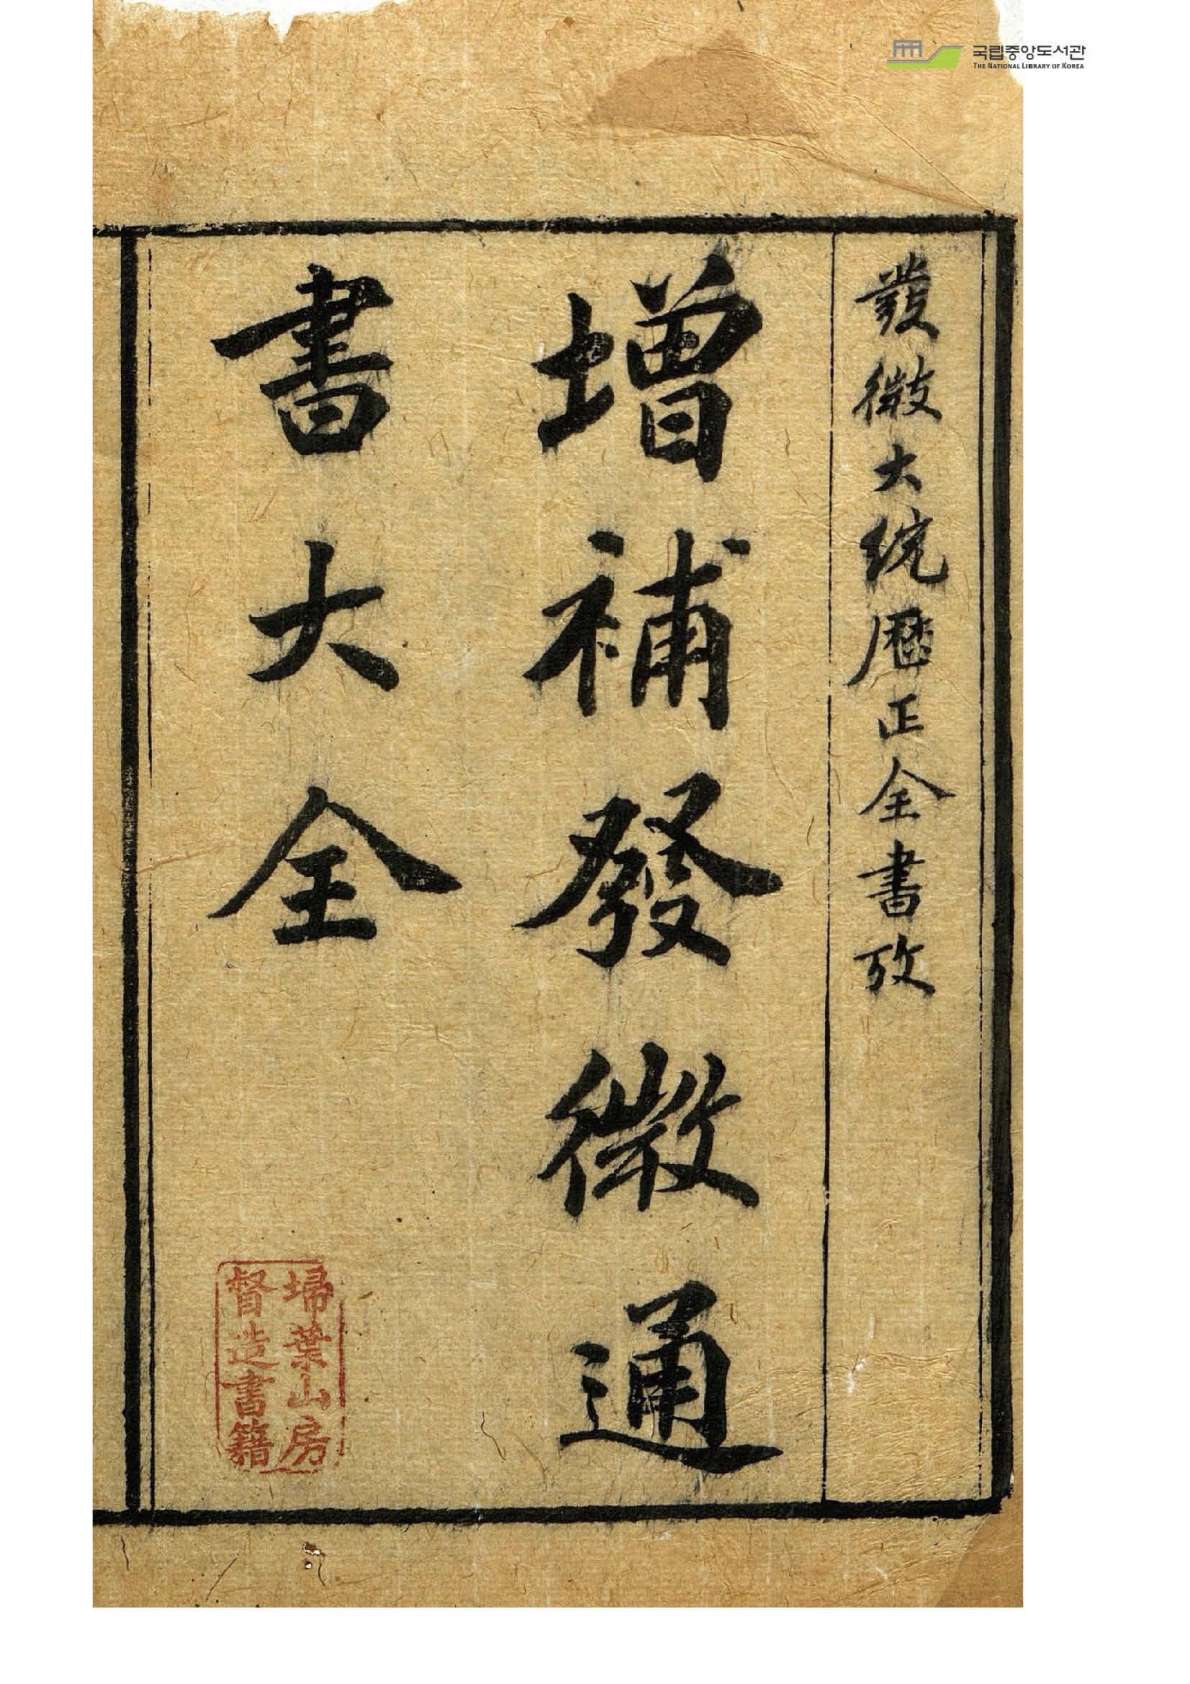 국립중앙도서관
THE NATIONAL LIBRARY OF KOREA
發微大統曆正全書攷
增補發微通
書大全
埽葉山房
督造書籍